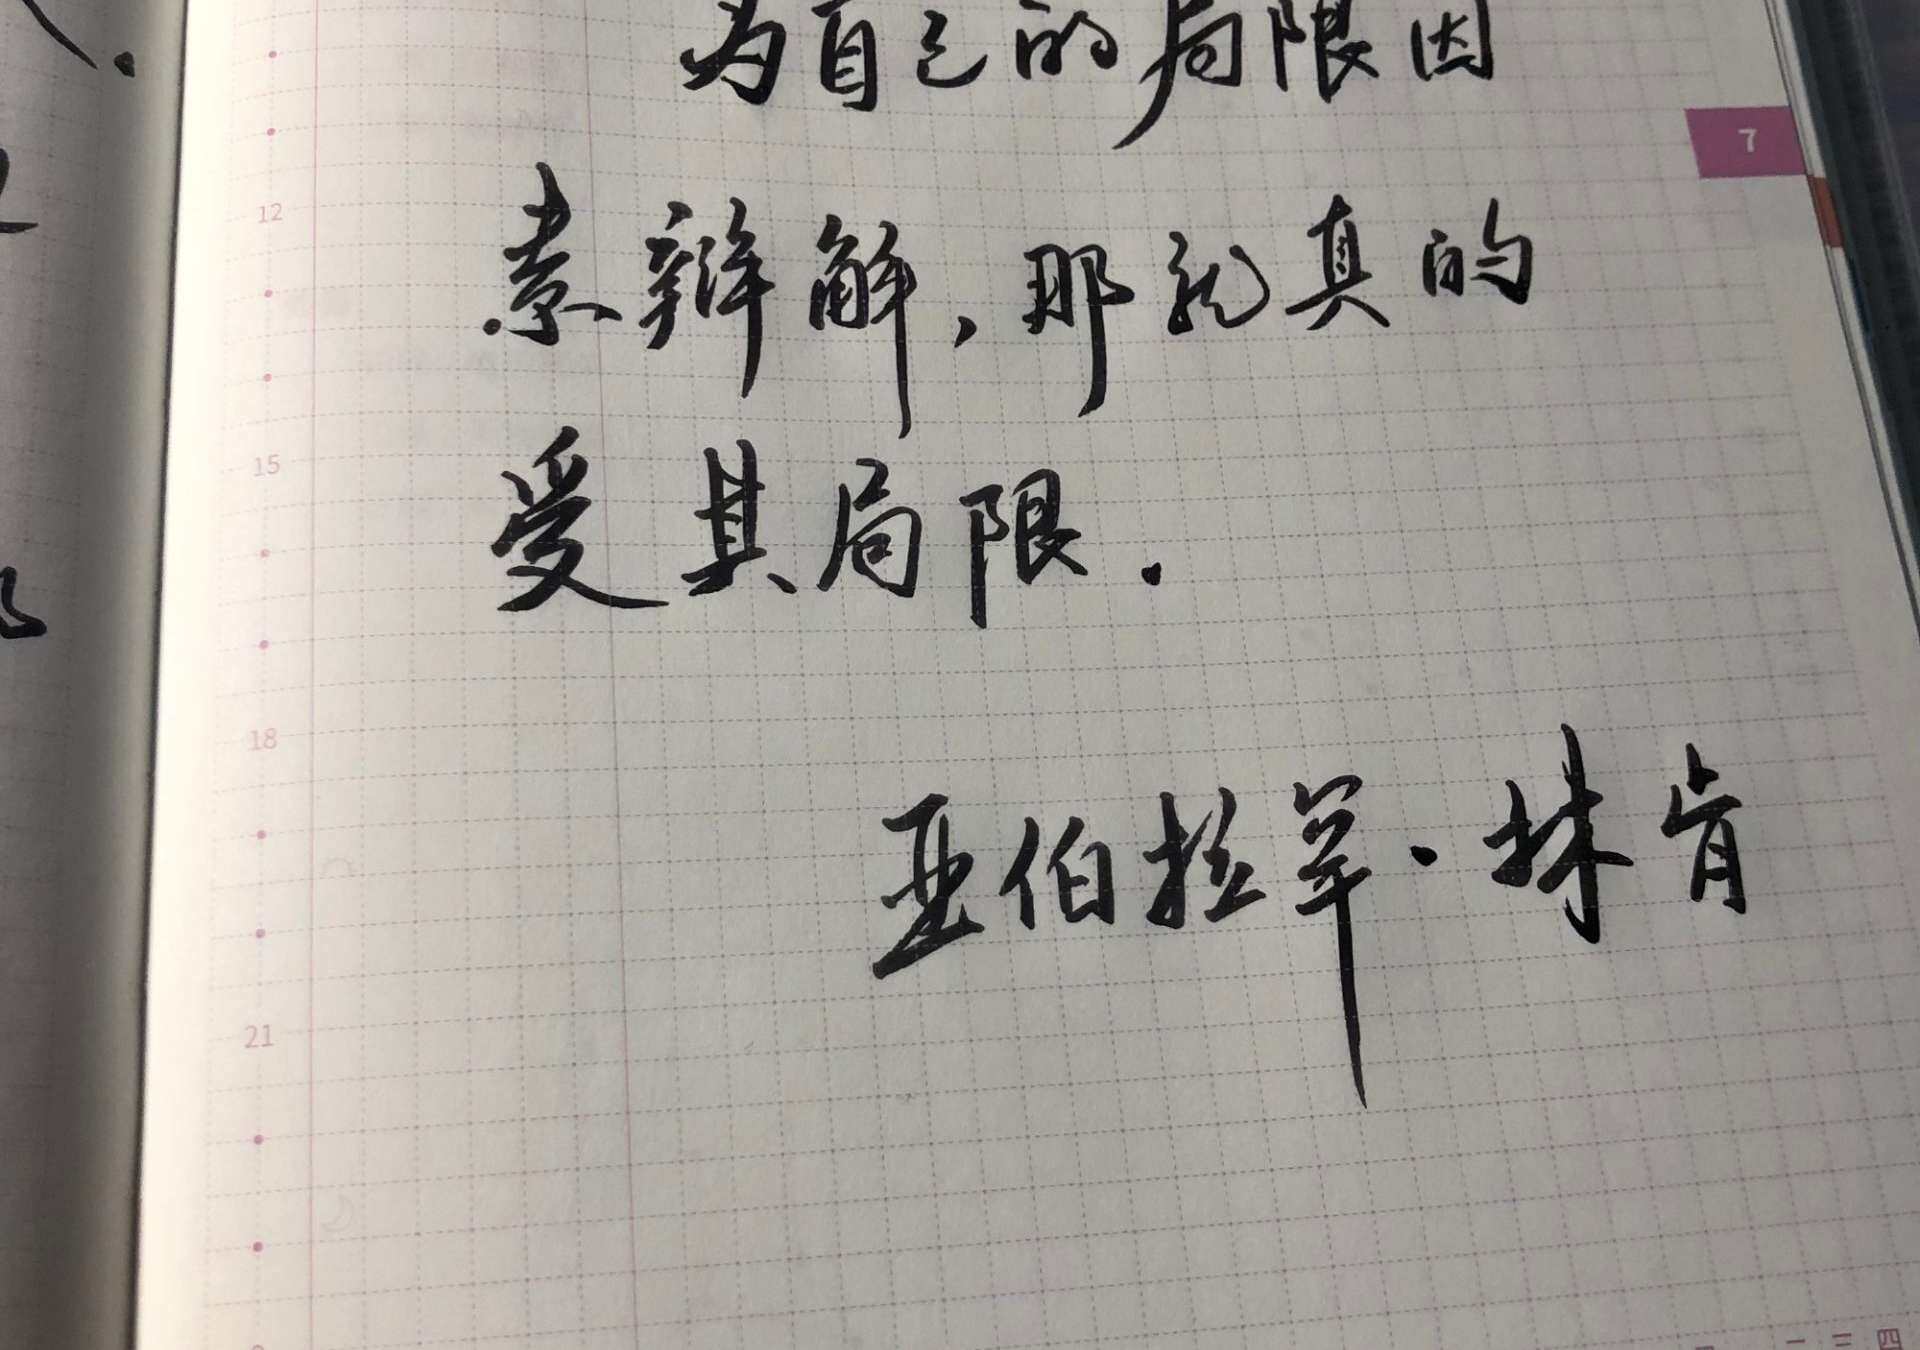 为自己的局限因
7
12
素辩解,那就真的
15
受其局限.
18
亚伯拉罕·林肯
21
一 二 三 四